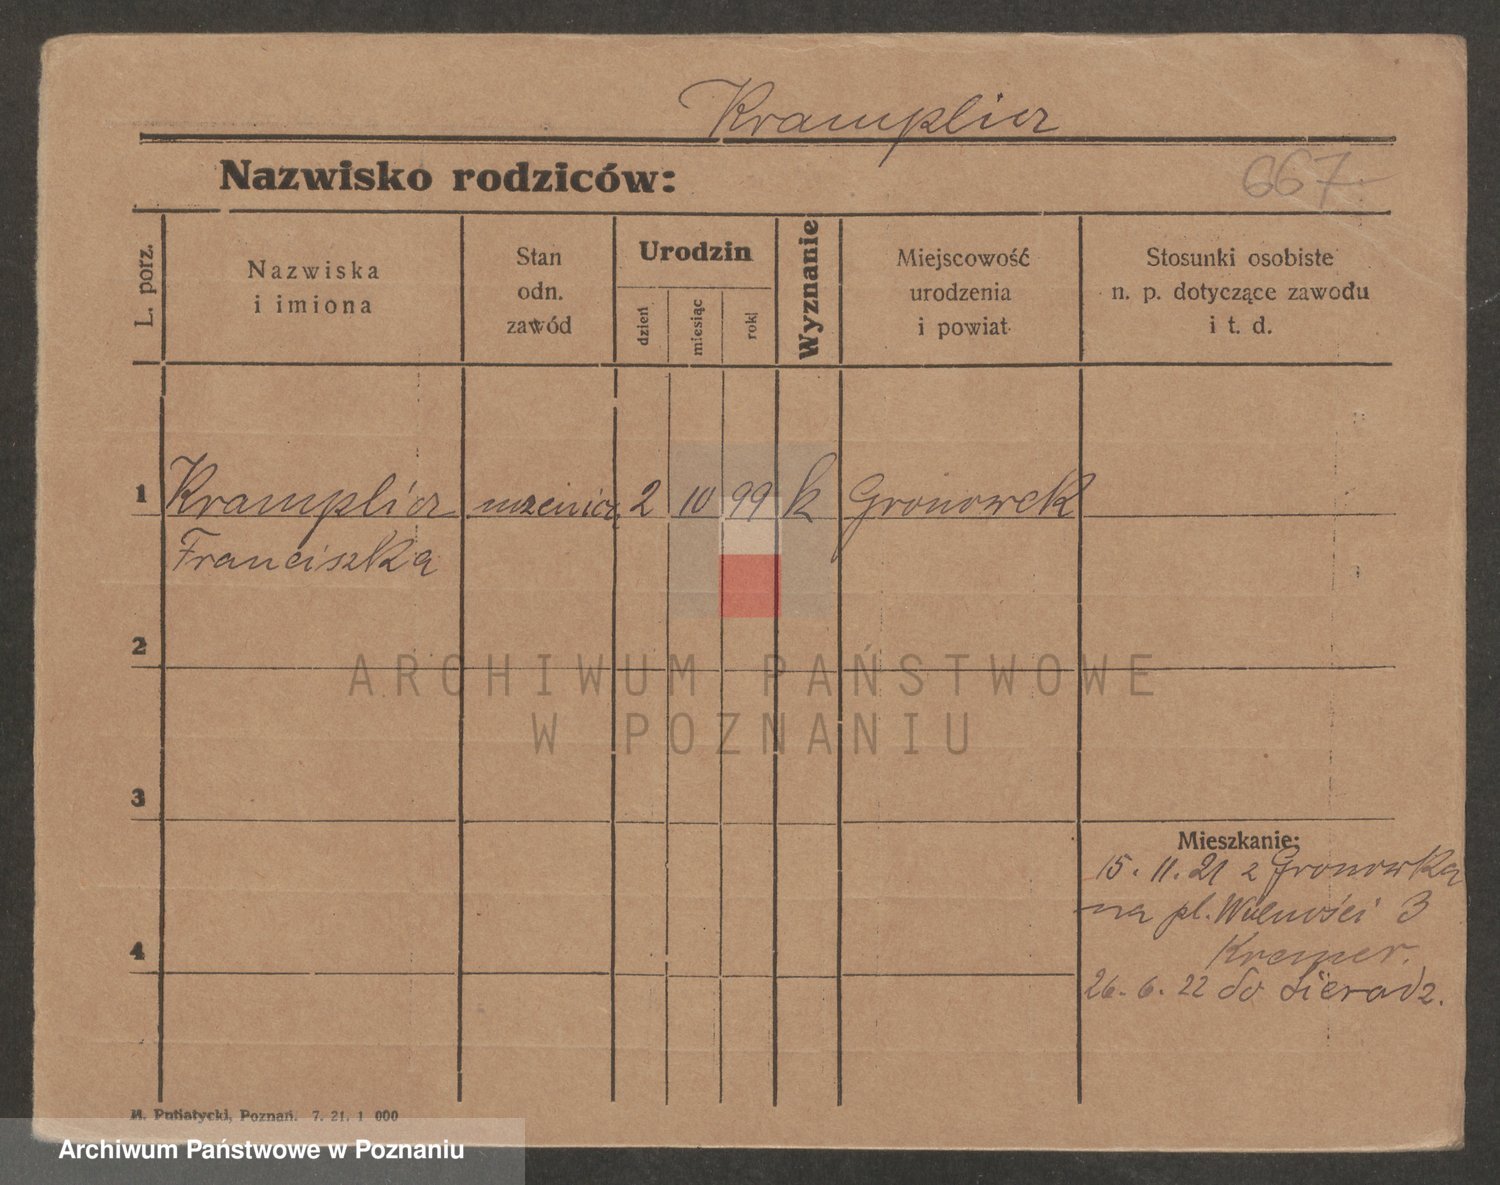 Kramplicz
Nazwisko rodziców:
667.
L. porz.
Nazwiska
i imiona
Stan
odn.
zawód
Urodzin
dzień
miesiąc
rok
Wyznanie
Miejscowość
urodzenia
i powiat
Stosunki osobiste
n. p. dotyczące zawodu
i t. d.
1 Kramplicz 2 10 99 k Gronowek
Franciszka
2
3
4
Mieszkanie:
15. 11. 21 z Gronowka
na pl. Wolności 3
Kremer.
26. 6. 22 do Sieradz.
M. Putiatycki, Poznań. 7. 21. 1 000
ARCHIWUM PAŃSTWOWE
W POZNANIU
Archiwum Państwowe w Poznaniu